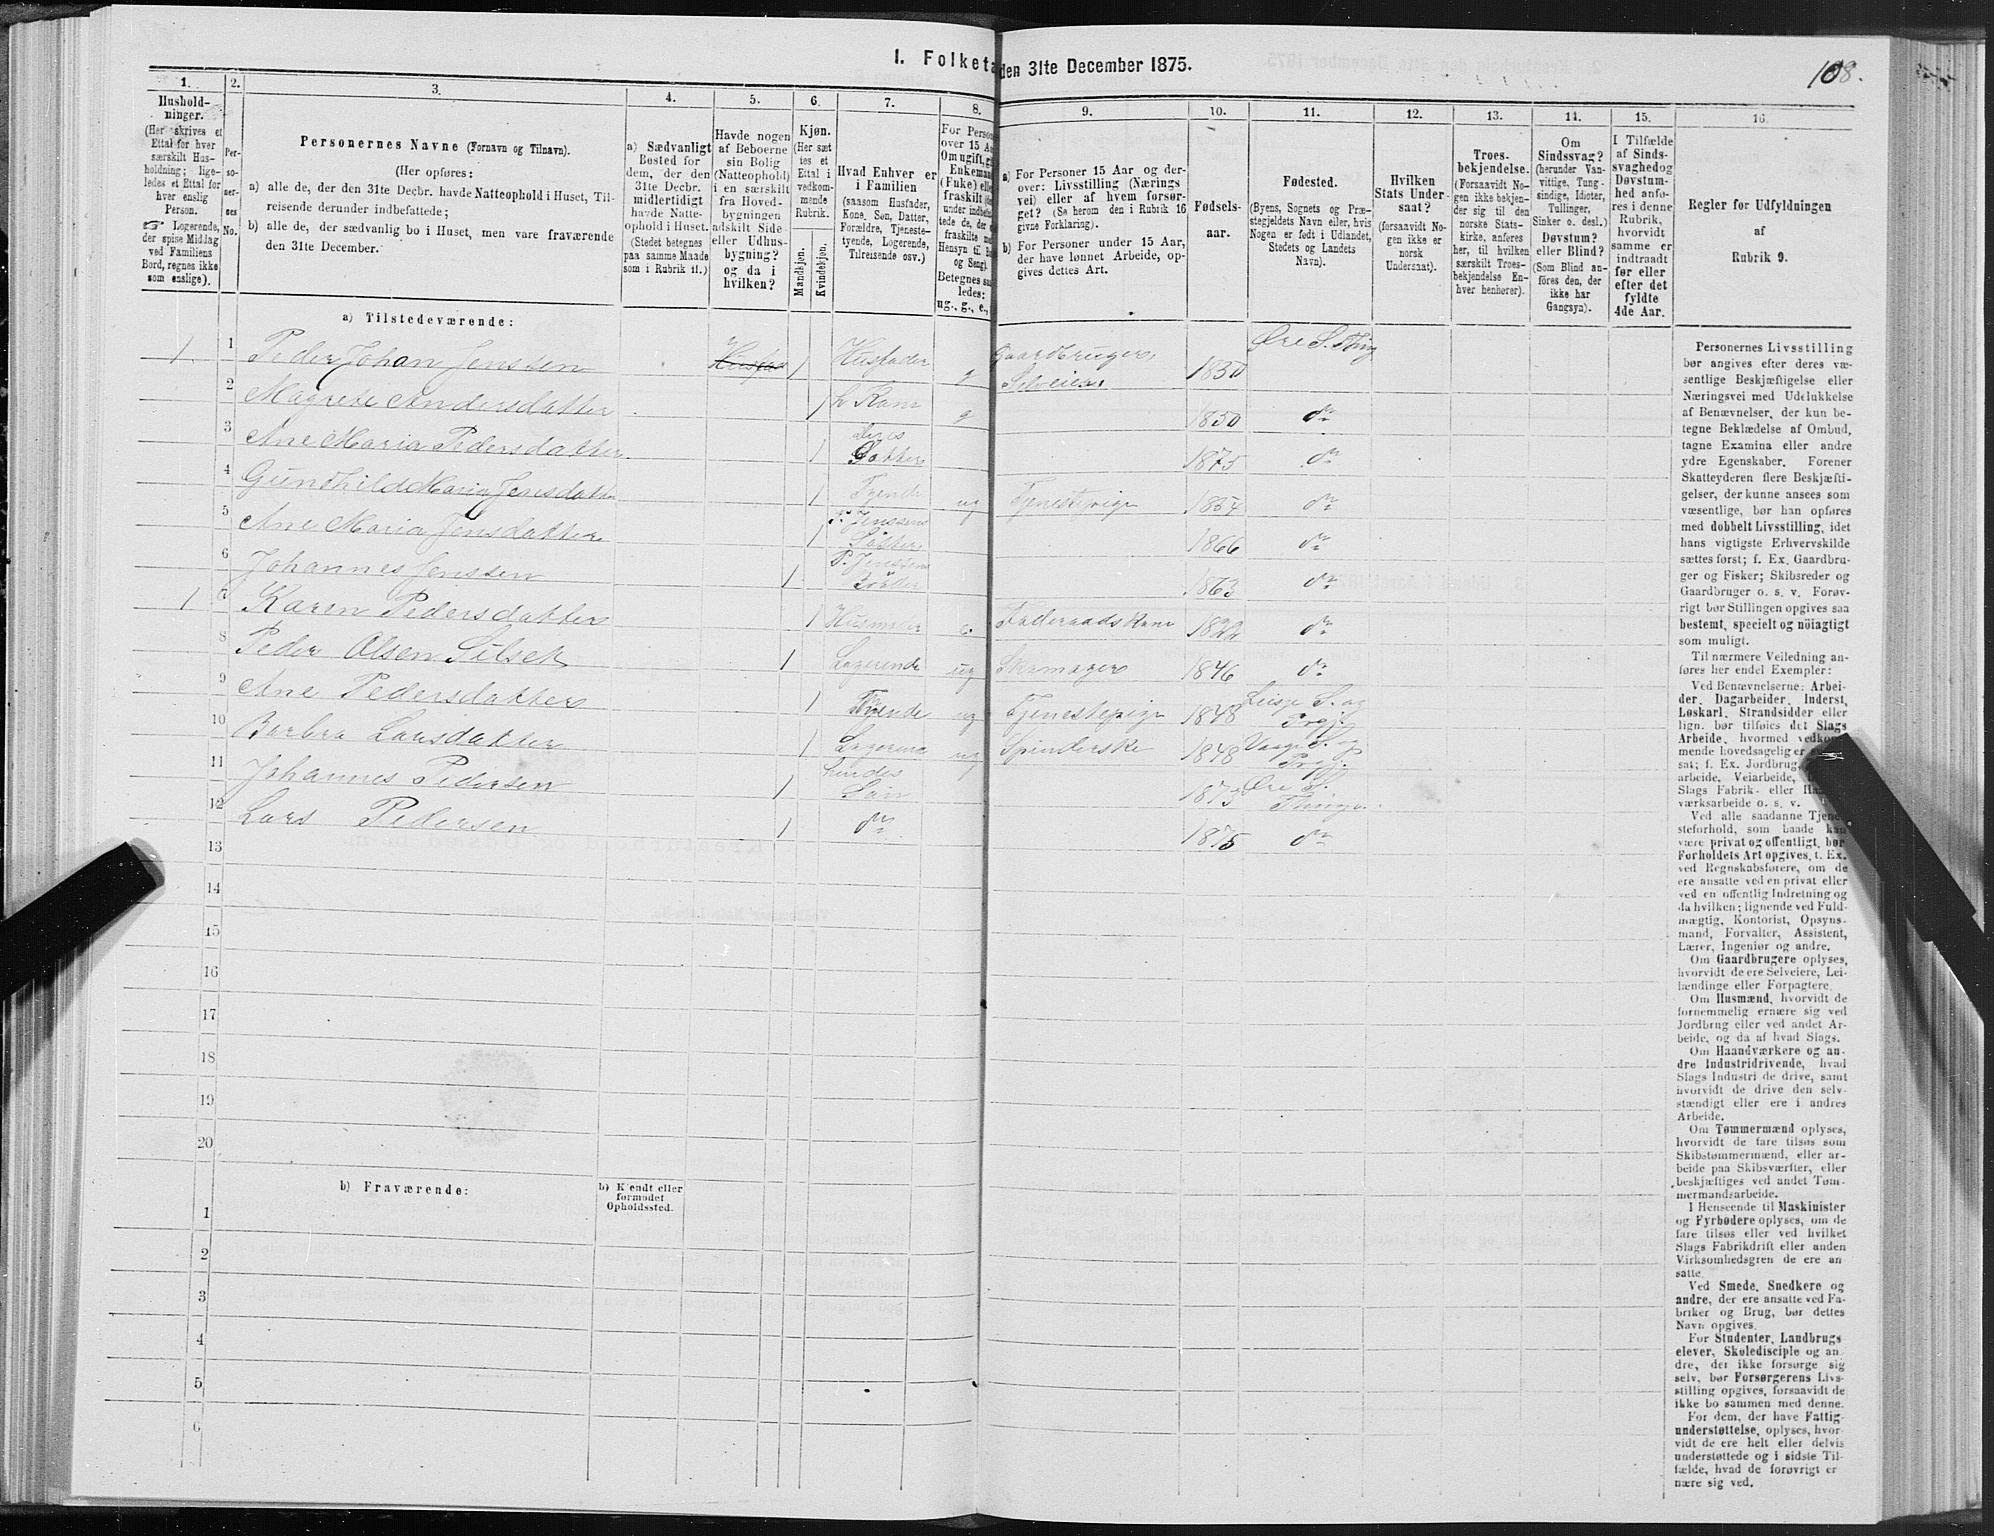 1. Folketa den 31te December 1875.
108.
1.
Hushold-
ninger.
(Her skrives et
Ettal for hver
særskilt Hus-
holdning; lige-
ledes et Ettal for
hver enslig
Person.
☞ Logerende,
der spise Middag
ved Familiens
Bord, regnes ikke
som enslige).
2.
Per-
so-
ner-
nes
No.
3.
Personernes Navne (Fornavn og Tilnavn).
(Her opføres:
a) alle de, der den 31te Decbr. havde Natteophold i Huset, Til-
reisende derunder indbefattede;
b) alle de, der sædvanlig bo i Huset, men vare fraværende
den 31te December.
4.
a) Sædvanligt
Bosted for
dem, der den
31te Decbr.
midlertidigt
havde Natte-
ophold i Huset.
(Stedet betegnes
paa samme Maade
som i Rubrik 11.)
5.
Havde nogen
af Beboerne
sin Bolig
(Natteophold)
i en særskilt
fra Hoved-
bygningen
adskilt Side-
eller Udhus-
bygning?
og da i
hvilken?
6.
Kjøn.
(Her sæt-
tes et
Ettal i
vedkom-
mende
Rubrik.
Mandkjøn.
Kvindekjøn.
7.
Hvad Enhver er
i Familien
(saasom Husfader,
Kone, Søn, Datter,
Forældre, Tjeneste-
tyende, Logerende,
Tilreisende osv.)
8.
For Person
over 15 Aa
Om ugift, gi
Enkemand
(Enke) elle
fraskilt
under indbef
tede de, der
fraskilte m
Hensyn til Bo
og Seng).
Betegnes saa
ledes:
ug., g., e.,
9.
a) For Personer 15 Aar og der-
over: Livsstilling (Nærings-
vei) eller af hvem forsør-
get? (Se herom den i Rubrik 16
givne Forklaring).
b) For Personer under 15 Aar,
der have lønnet Arbeide, op-
gives dettes Art.
10.
Fødsels-
aar.
11.
Fødested.
(Byens, Sognets og Præ-
stegjeldets Navn eller, hvis
Nogen er født i Udlandet,
Stedets og Landets
Navn).
12.
Hvilken
Stats Under-
saat?
(forsaavidt No-
gen ikke er
norsk
Undersaat).
13.
Troes-
bekjendelse.
(Forsaavidt No-
gen ikke bekjen-
der sig til den
norske Stats-
kirke, anføres
her, til hvilken
særskilt Troes-
bekjendelse En-
hver henhører).
14.
Om
Sindssvag?
(herunder Van-
vittige, Tung-
sindige, Idioter,
Tullinger,
Sinker o. desl.)
Døvstum?
eller Blind?
(Som Blind an-
føres den, der
ikke har
Gangsyn).
15.
I Tilfælde
af Sinds-
svaghed og
Døvstum-
hed anfø-
res i denne
Rubrik,
hvorvidt
samme er
indtraadt
før eller
efter det
fyldte
4de Aar.
16.
Regler for Udfyldningen
af
Rubrik 9.
a) Tilstedeværende:
1 1 Peder Johan Jenssen 1 Husfader g Gaardbruger, Selveier 1850 Øre S. Ting
2 Magrete Andersdatter 1 h. Kone g 1850 do
3 Ane Maria Pedersdatter 1 deres Datter 1875 do
4 Gundhild Maria Jensdatter 1 Tyende ug Tjenestepige 1854 do
5 Ane Maria Jensdatter 1 P. Jenssens 1866 do
6 Johannes Jenssen 1 P. Jenssens Broder 1863 do
1 7 Karen Pedersdatter 1 Husmoder e. Føderaadskone 1822 do
8 Peder Olsen Silset 1 Logerende ug Skomager 1846 do
9 Ane Pedersdatter 1 Tyende ug Tjenestepige 1848 S. og Prgj.
10 Barbra Larsdatter 1 Logerende ug Spinderske 1848 Vaage S. og Prgj.
11 Johannes Pedersen 1 hendes Søn 1873 Øre S. Thinge.
12 Lars Pedersen 1 do 1875 do
13
14
15
16
17
18
19
20
b) Fraværende:
b) Kjendt eller
formodet
Opholdssted.
1
2
3
4
5
6
Personernes Livsstilling
bør angives efter deres væ-
sentlige Beskjæftigelse eller
Næringsvei med Udelukkelse
af Benævnelser, der kun be-
tegne Beklædelse af Ombud,
tagne Examina eller andre
ydre Egenskaber. Forener
Skatteyderen flere Beskjæfti-
gelser, der kunne ansees som
væsentlige, bør han opføres
med dobbelt Livsstilling, idet
hans vigtigste Erhvervskilde
sættes først; f. Ex. Gaardbru-
ger og Fisker; Skibsreder og
Gaardbruger o. s. v. Forøv-
rigt bør Stillingen opgives saa
bestemt, specielt og nöiagtigt
som muligt.
Til nærmere Veiledning an-
føres her endel Exempler:
Ved Benævnelserne: Arbei-
der, Dagarbeider, Inderst,
Løskarl, Strandsidder eller
lign. bør tilføies det Slags
Arbeide, hvormed vedkom-
mende hovedsagelig er
sat; f. Ex. Jordbrug,
arbeide, Veiarbeide,
Slags Fabrik- eller
værksarbeide o. s. v.
Ved alle saadanne Tjene-
steforhold, som baade kan
være privat og offentligt, bør
Forholdets Art opgives, f. Ex.
ved Regnskabsførere, om de
ere ansatte ved en privat eller
ved en offentlig Indretning og
da hvilken; lignende ved Fuld-
mægtig, Kontorist, Opsyns-
mand, Forvalter, Assistent,
Lærer, Ingeniør og andre.
Om Gaardbrugere oplyses,
hvorvidt de ere Selveiere, Lei-
lændinge eller Forpagtere.
Om Husmænd, hvorvidt de
fornemmelig ernære sig ved
Jordbrug eller ved andet Ar-
beide, og da af hvad Slags.
Om Haandværkere og an-
dre Industridrivende, hvad
Slags Industri de drive, samt
hvorvidt de drive den selv-
stændigt eller ere i andres
Arbeide.
Om Tømmermænd oplyses,
hvorvidt de fare tilsøs som
Skibstømmermænd, eller ar-
beide paa Skibsværfter, eller
beskjæftiges ved andet Tøm-
mermandsarbeide.
I Henseende til Maskinister
og Fyrbødere oplyses, om de
fare tilsøs eller ved hvilket
Slags Fabrikdrift eller anden
Virksomhedsgren de ere an-
satte.
Ved Smede, Snedkere og
andre, der ere ansatte ved Fa-
briker og Brug, bør dettes
Navn opgives.
For Studenter, Landbrugs-
elever, Skoledisciple og an-
dre, der ikke forsørge sig
selv, bør Forsørgerens Livs-
stilling opgives, forsaavidt de
ikke bo sammen med denne.
For dem, der have Fattig-
understøttelse, oplyses, hvor-
vidt de ere helt eller delvis
understøttede og i sidste Til-
fælde, hvad de forøvrigt er-
nære sig ved.